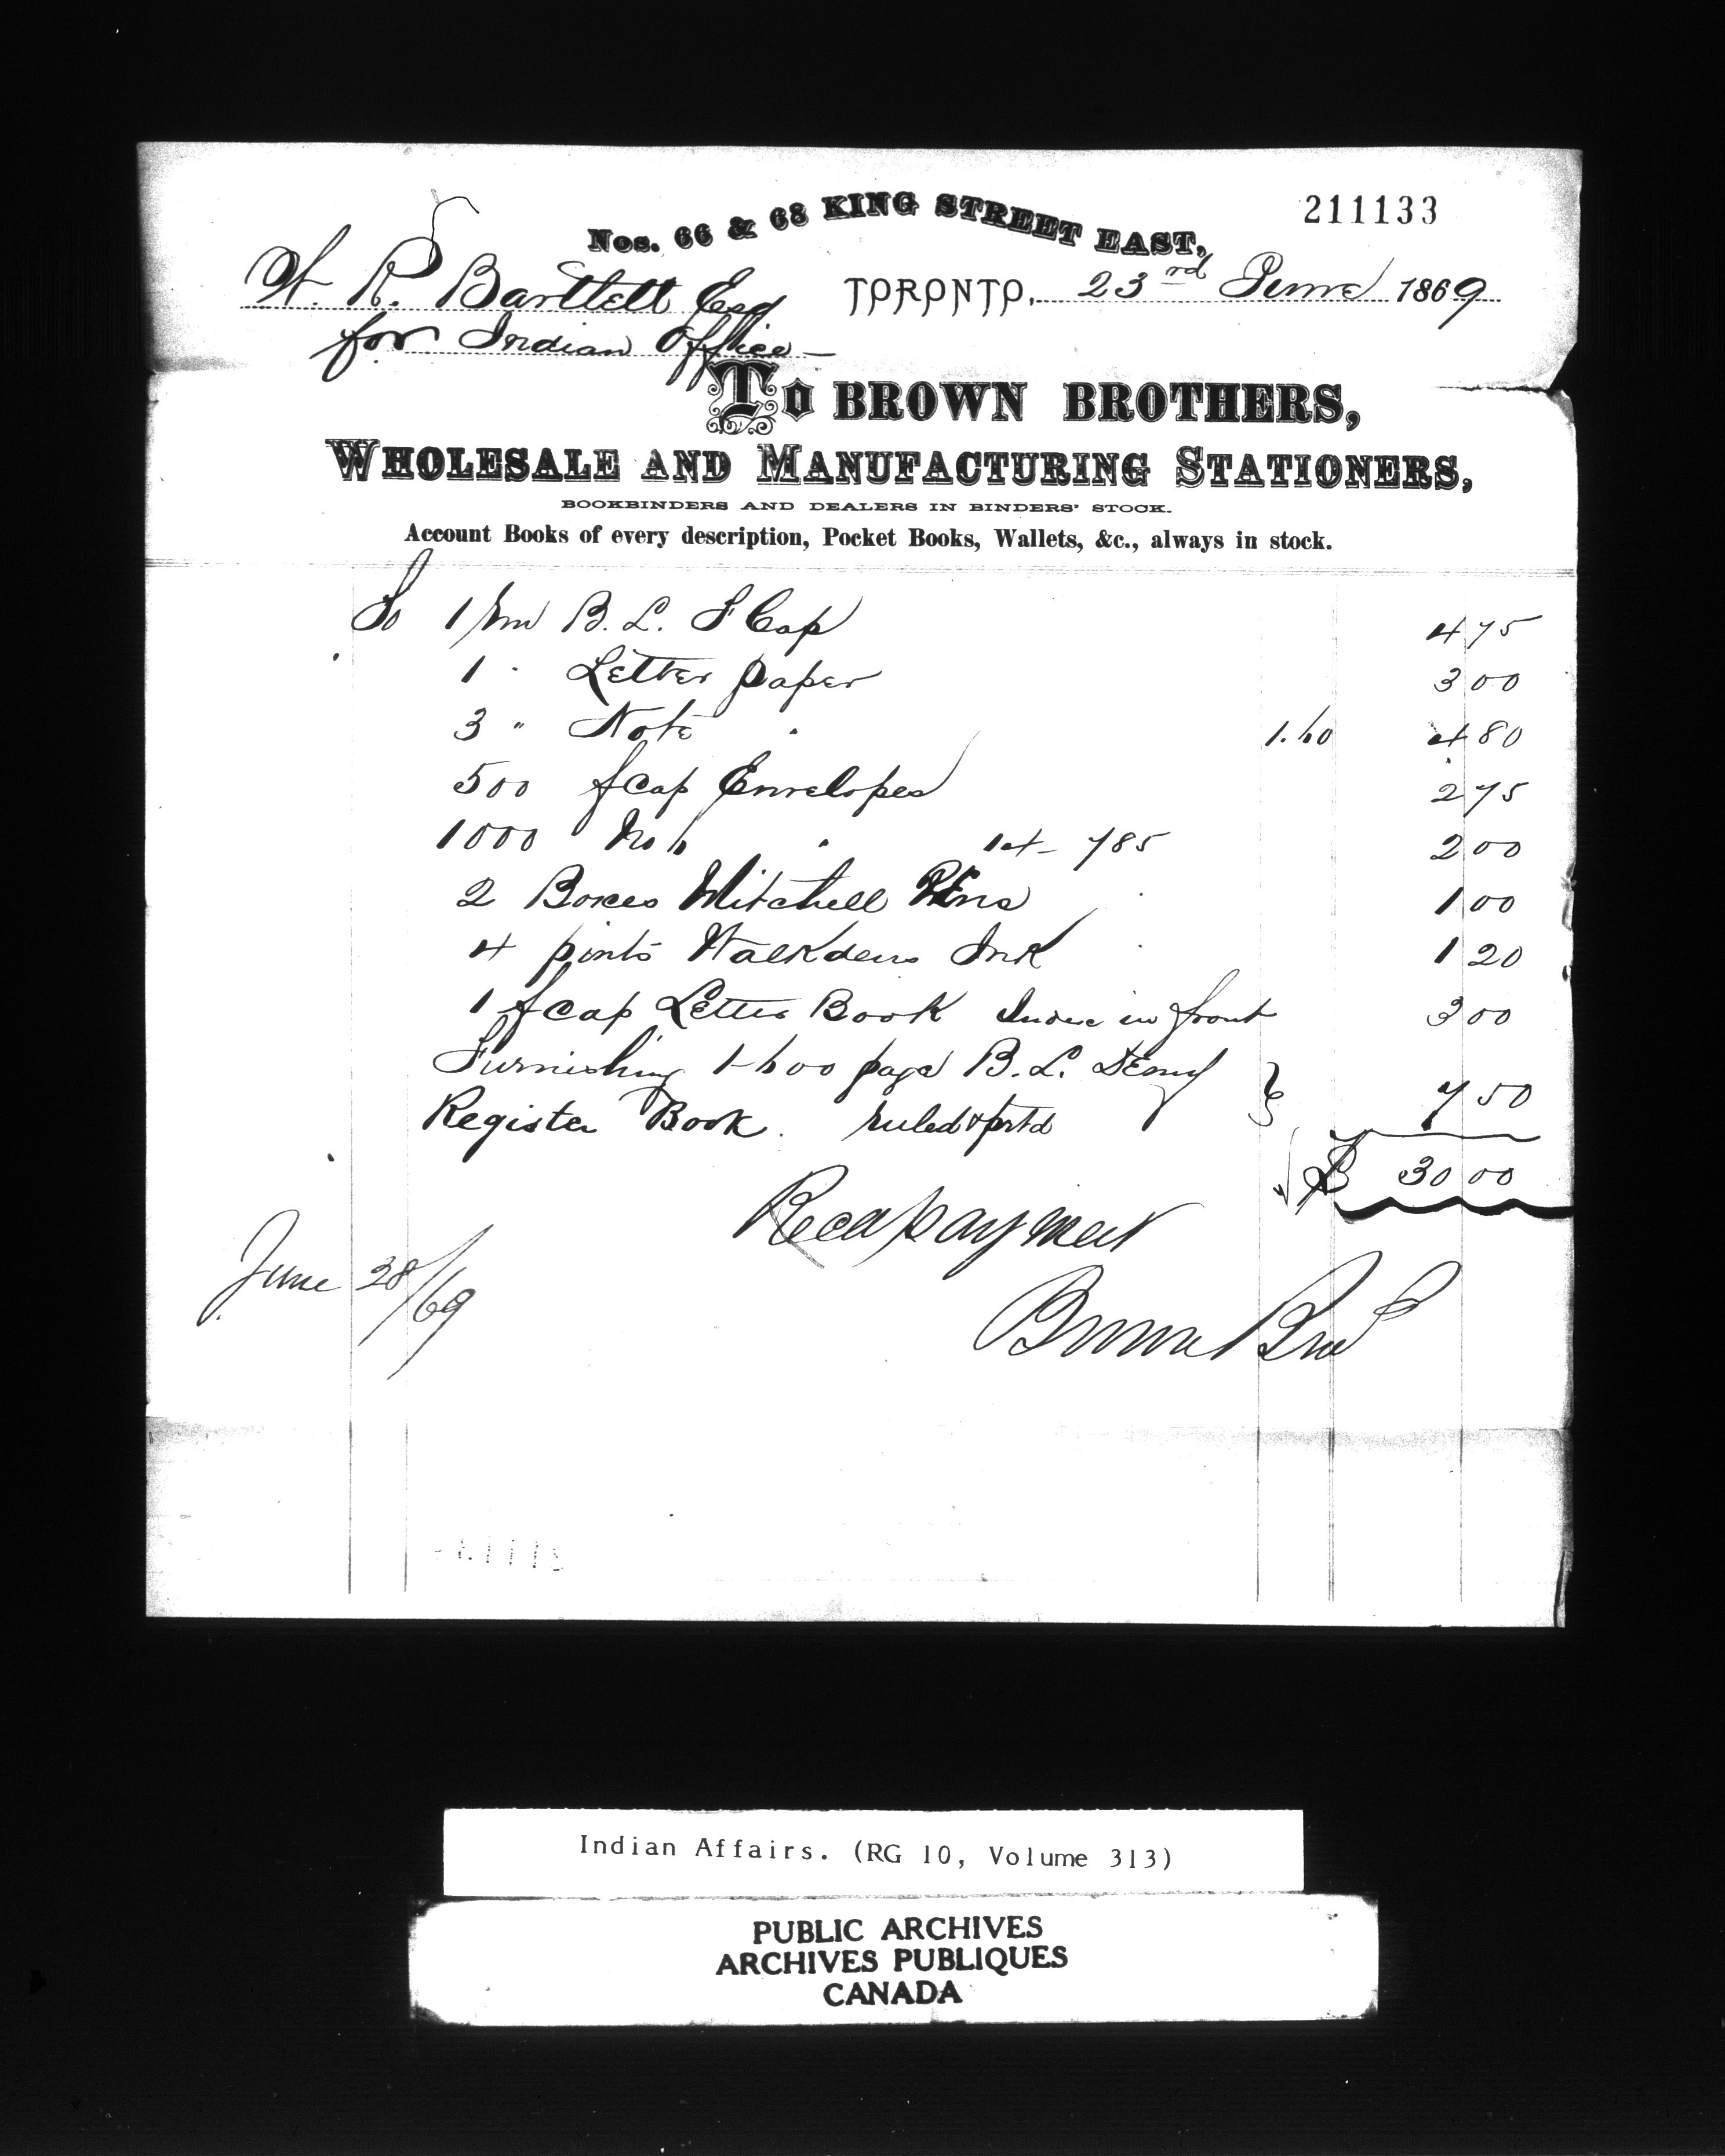 211133
Nos. 66 & 68 KING STREET EAST,
W. R. Bartlett Esq TORONTO, 23rd June 1869
for Indian Office
To BROWN BROTHERS,
WHOLESALE AND MANUFACTURING STATIONERS,
BOOKBINDERS AND DEALERS IN BINDERS' STOCK.
Account Books of every description, Pocket Books, Wallets, &c., always in stock.
To 1 Rm B. L. F Cap 4 75
1 " Letter paper 3 00
3 " Note " 1.60 4 80
500 fcap Envelopes 2 75
1000 No 6 " 14- 785 2 00
2 Boxes Mitchell Pens 1 00
4 pints Walkdens Ink 1 20
1 fcap Letter Book Index in front 3 00
Furnishing 1-600 page B. L. Demy
Register Book. ruled & prtd 7 50
$ 30 00
Recd payment
June 28/69
Brown Bros
Indian Affairs. (RG 10, Volume 313)
PUBLIC ARCHIVES
ARCHIVES PUBLIQUES
CANADA